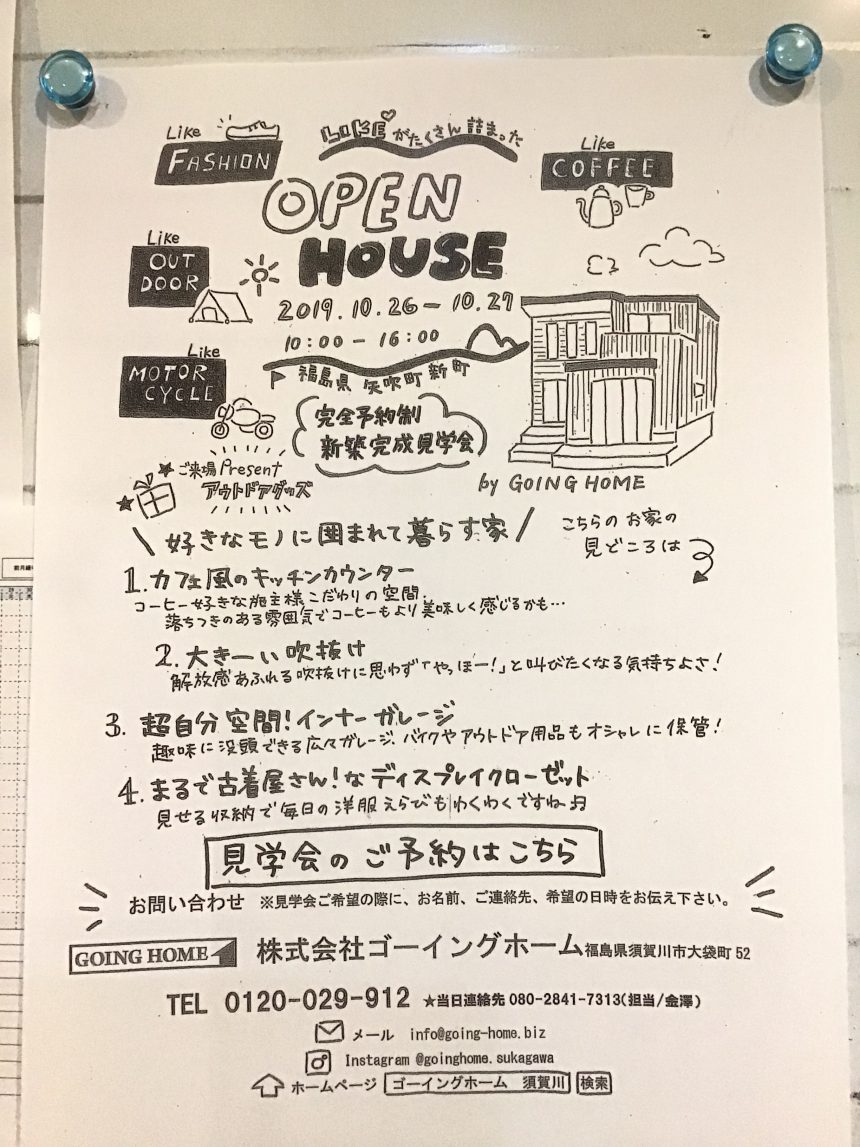 Like
FASHION
LIKEがたくさん詰まった
Like
COFFEE
OPEN
HOUSE
Like
OUT
DOOR
2019.10.26-10.27
10:00-16:00
福島県 矢吹町 新町
Like
MOTOR
CYCLE
完全予約制
新築完成見学会
by GOING HOME
★★ご来場Present
アウトドアグッズ
\好きなモノに囲まれて暮らす家/
こちらのお家の
見どころは
1.カフェ風のキッチンカウンター
コーヒー好きな施主様こだわりの空間.
落ちつきのある雰囲気でコーヒーもより美味しく感じるかも…
2.大きーい吹抜け
解放感あふれる吹抜けに思わず「やっほー!」と叫びたくなる気持ちよさ!
3.超自分空間!インナーガレージ
趣味に没頭できる広々ガレージ、バイクやアウトドア用品もオシャレに保管!
4.まるで古着屋さん!なディスプレイクローゼット
見せる収納で毎日の洋服えらびもわくわくですね♫
見学会のご予約はこちら
お問い合わせ ※見学会ご希望の際に、お名前、ご連絡先、希望の日時をお伝え下さい。
GOING HOME 株式会社ゴーイングホーム 福島県須賀川市大袋町52
TEL 0120-029-912 ★当日連絡先 080-2841-7313(担当/金澤)
メール info@going-home.biz
Instagram @goinghome.sukagawa
ホームページ ゴーイングホーム 須賀川 検索